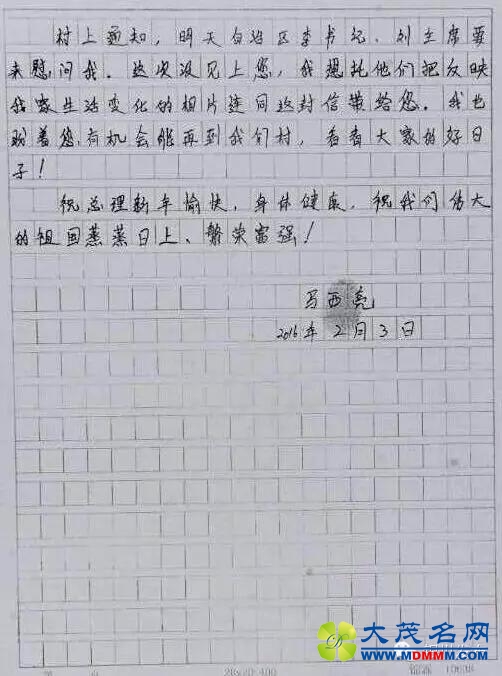 村上通知，明天自治区李书记、刘主席要
来慰问我。这次没见上您，我想托他们把反映
我家生活变化的相片连同这封信带给您。我也
盼着您有机会能再到我们村，看看大家的好日
子！
祝总理新年愉快，身体健康，祝我们伟大
的祖国蒸蒸日上、繁荣富强！
马西亮
2016年2月3日
大茂名网
WWW.MDMMM.COM